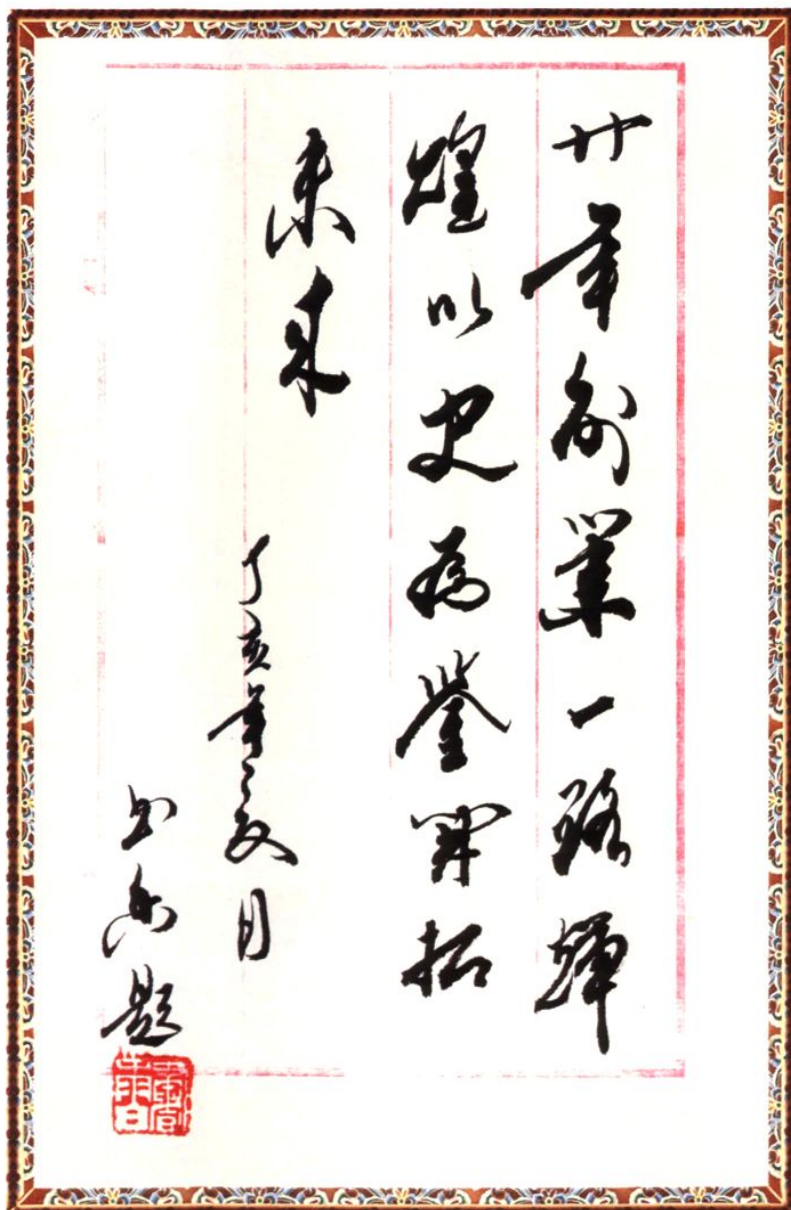 廿年創業一路輝
煌以史為鑒開拓
未來
丁亥年夏月
題